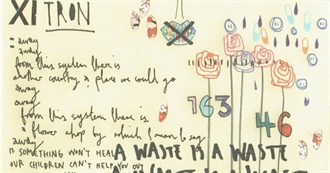 XI TRON
away
away
from this system there is
another country a place we could go
away
away
from this system there is
a flower shop by which I mean to say
away
IS SOMETHING WON'T HEAL
OUR CHILDREN CAN'T HELP YOU OUT
163
46
A WASTE IS A WASTE
A WASTE IS A WASTE